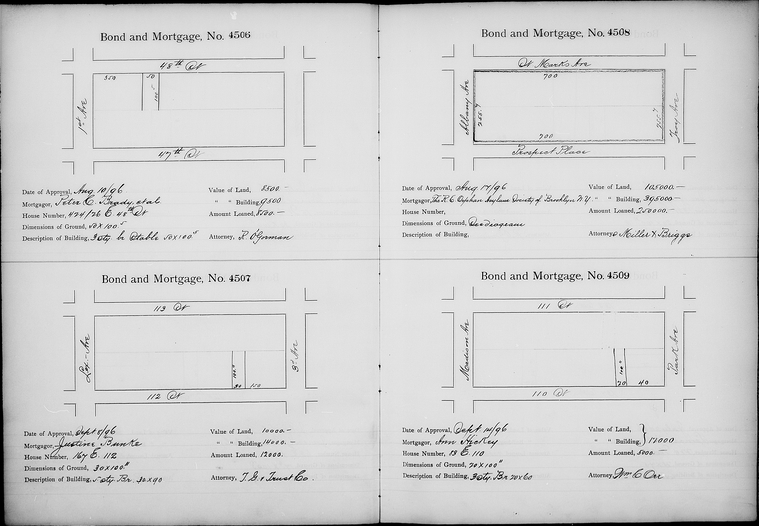 Bond and Mortgage, No. 4506
48th St
350
50
100
1st Ave
47th St
Date of Approval, Aug 10/96
Mortgagor, Peter C. Brady, et al
House Number, 424/26 E. 48th St
Dimensions of Ground, 50 x 100
Description of Building, 3 sty. br Stable 50 x 100
Value of Land,
" " Building, 9500
Amount Loaned,
Attorney, R. O'Gorman
Bond and Mortgage, No. 4507
113 St
Lex Ave
3d Ave
100
30 110
112 St
Date of Approval, Sept 8/96
Mortgagor, Justine Bunke
House Number, 167 E. 112
Dimensions of Ground, 30 x 100
Description of Building, 5 sty. Br. 30 x 90
Value of Land, 10000.-
" " Building, 14000.-
Amount Loaned, 12000.
Attorney, T. G. & Trust Co.
Bond and Mortgage, No. 4508
St Marks Ave
700
Albany Ave
255.7
255.7
Troy Ave
700
Prospect Place
Date of Approval, Aug 17/96
Mortgagor, The R. C. Orphan Asylum Society of Brooklyn N.Y.
House Number,
Dimensions of Ground, See diagram
Description of Building,
Value of Land, 105000.-
" " Building, 395000-
Amount Loaned, 250000.-
Attorneys Miller & Briggs
Bond and Mortgage, No. 4509
111 St
Madison Ave
Park Ave
100
20 40
110 St
Date of Approval, Sept 14/96
Mortgagor, Ann Hickey
House Number, E. 110
Dimensions of Ground, 20 x 100
Description of Building, 3 sty. Br 20 x 60
Value of Land,
" " Building, 12000
Amount Loaned, 5000.-
Attorney, Wm C Orr